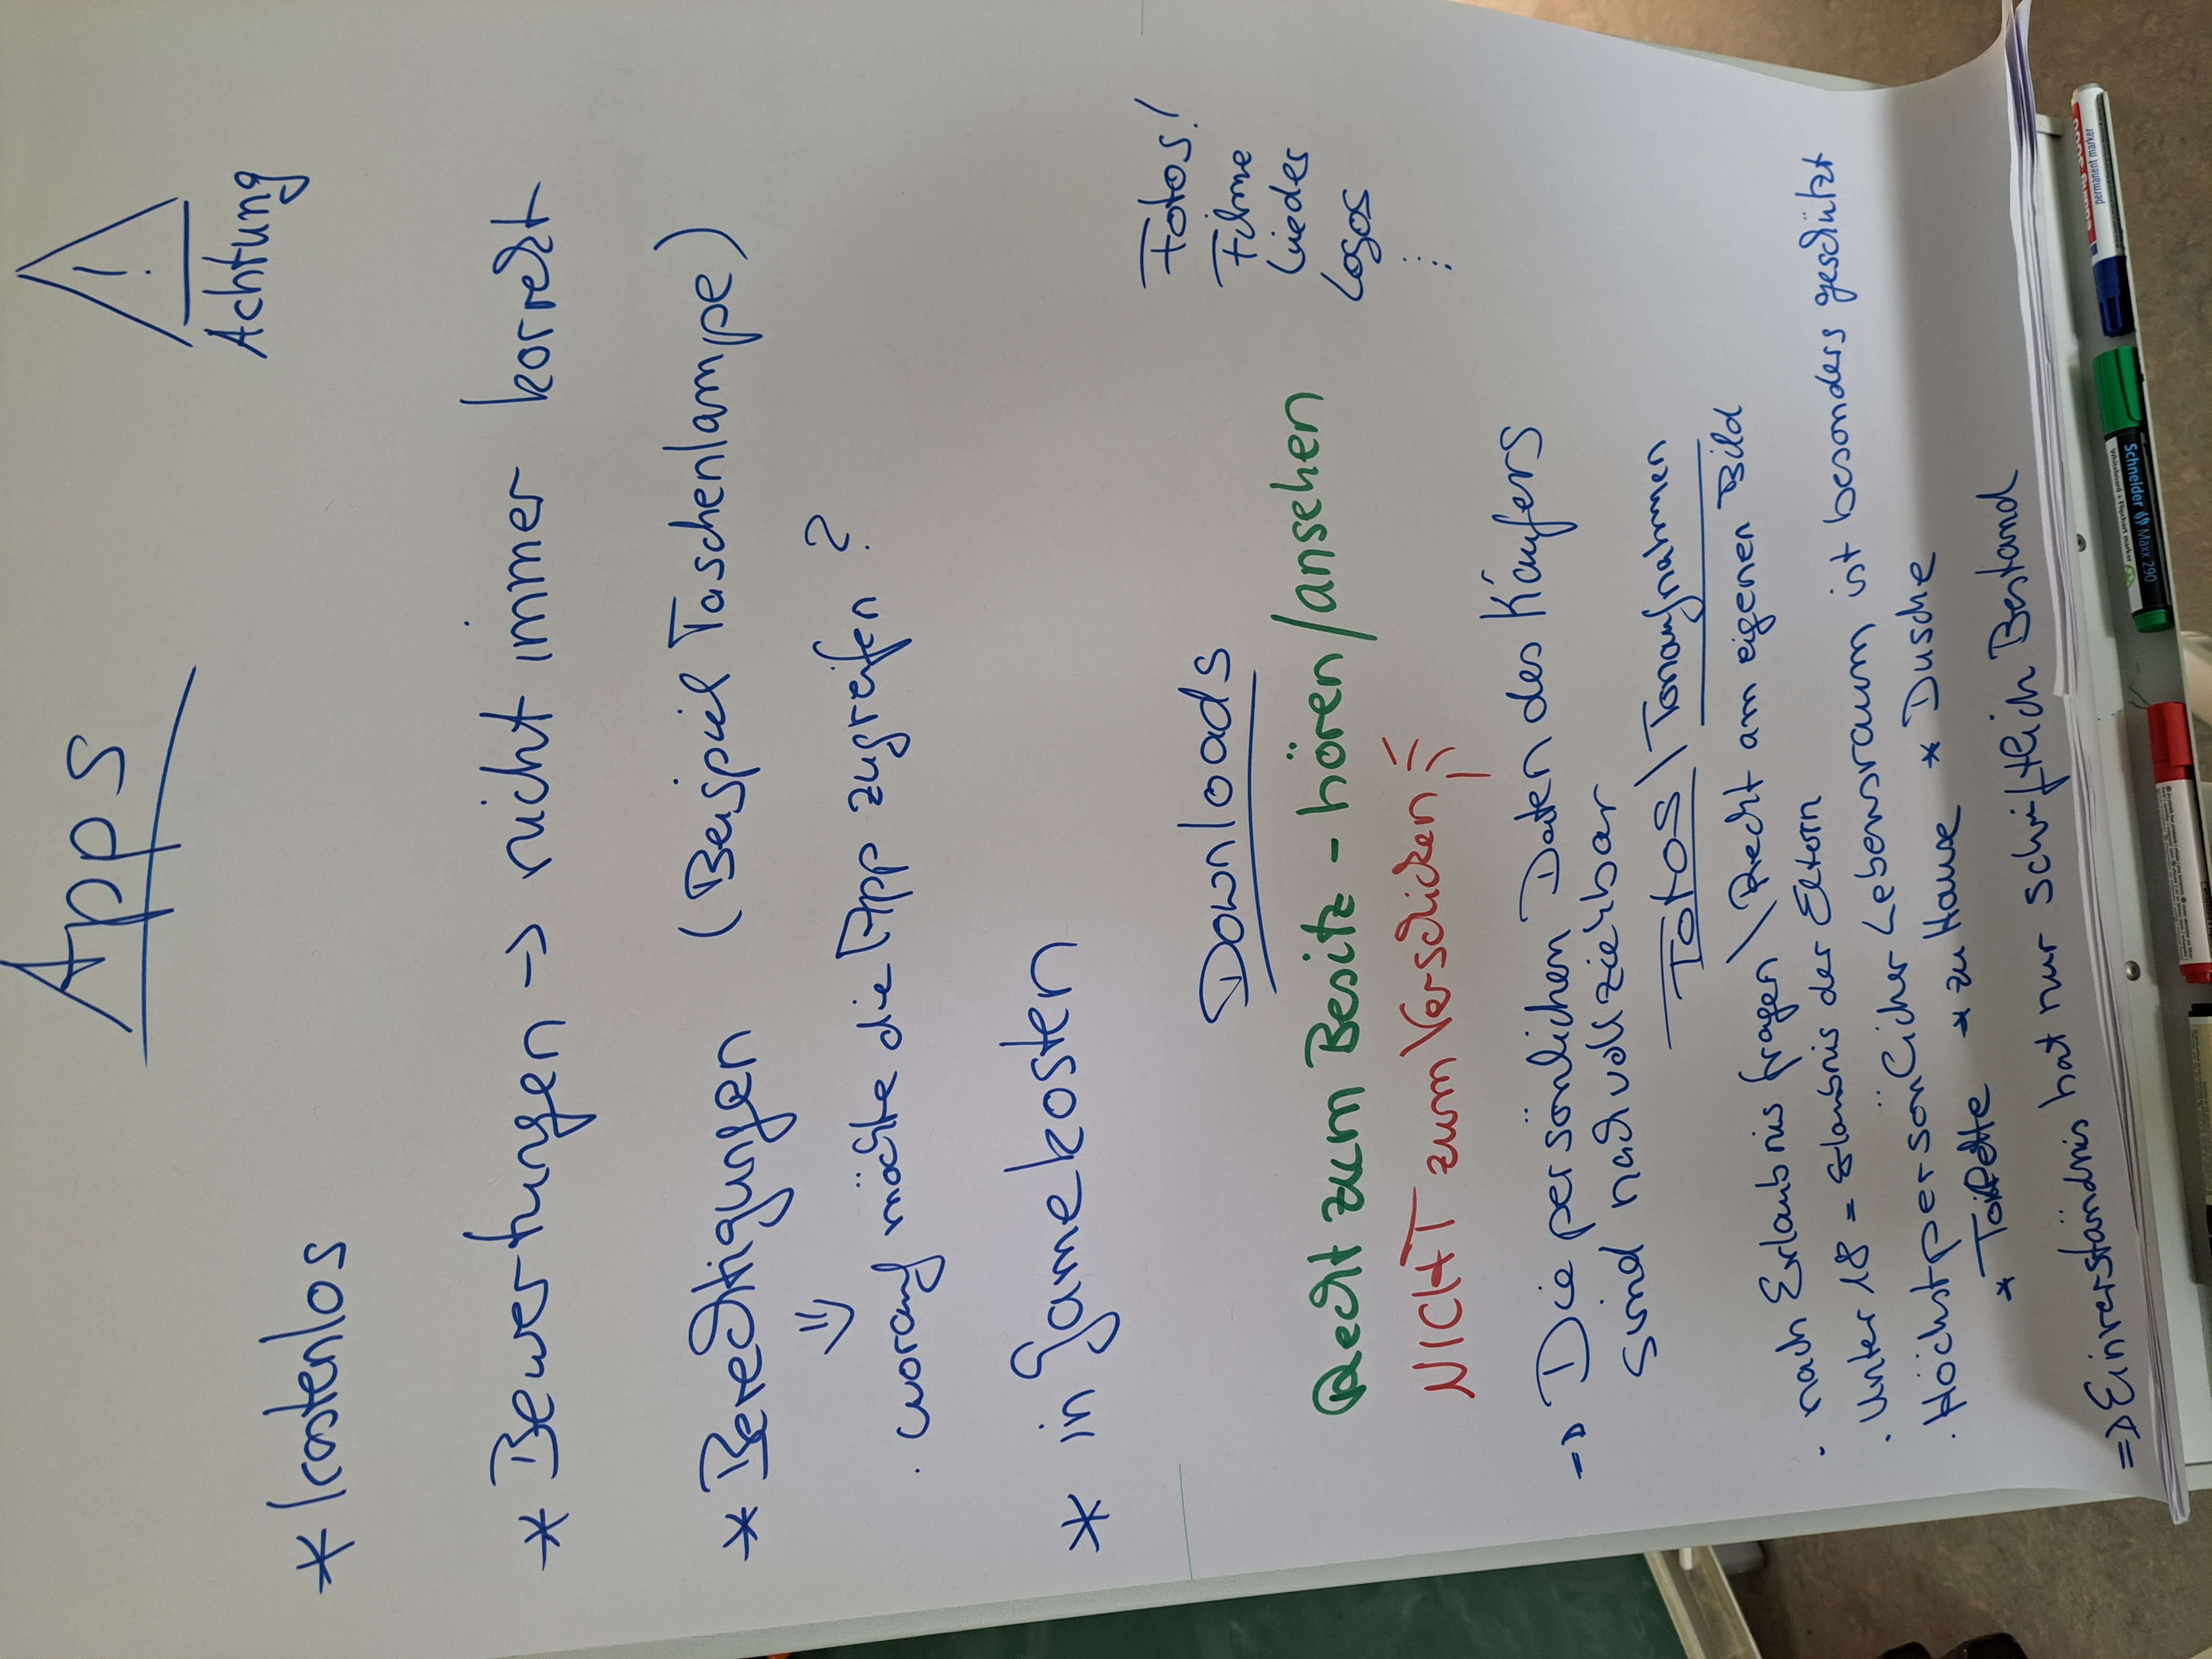 Apps
! Achtung
* kostenlos
* Bewertungen -> nicht immer korrekt
* Berechtigungen (Beispiel Taschenlampe)
⇓
· worauf möchte die App zugreifen?
* in Gamekosten
Downloads
Fotos!
Filme
Lieder
Logos
Recht zum Besitz - hören/ansehen
NICHT zum Verschicken
=> Die persönlichen Daten des Käufers
sind nachvollziehbar
Fotos \ Tonaufnahmen
· nach Erlaubnis fragen \ Recht am eigenen Bild
· unter 18 = Erlaubnis der Eltern
· Höchstpersönlicher Lebensraum ist besonders geschützt
* Toilette * zu Hause * Dusche
=> Einverständnis hat nur schriftlich Bestand
permanent marker
Schneider Maxx 290
Whiteboard + Flipchart marker